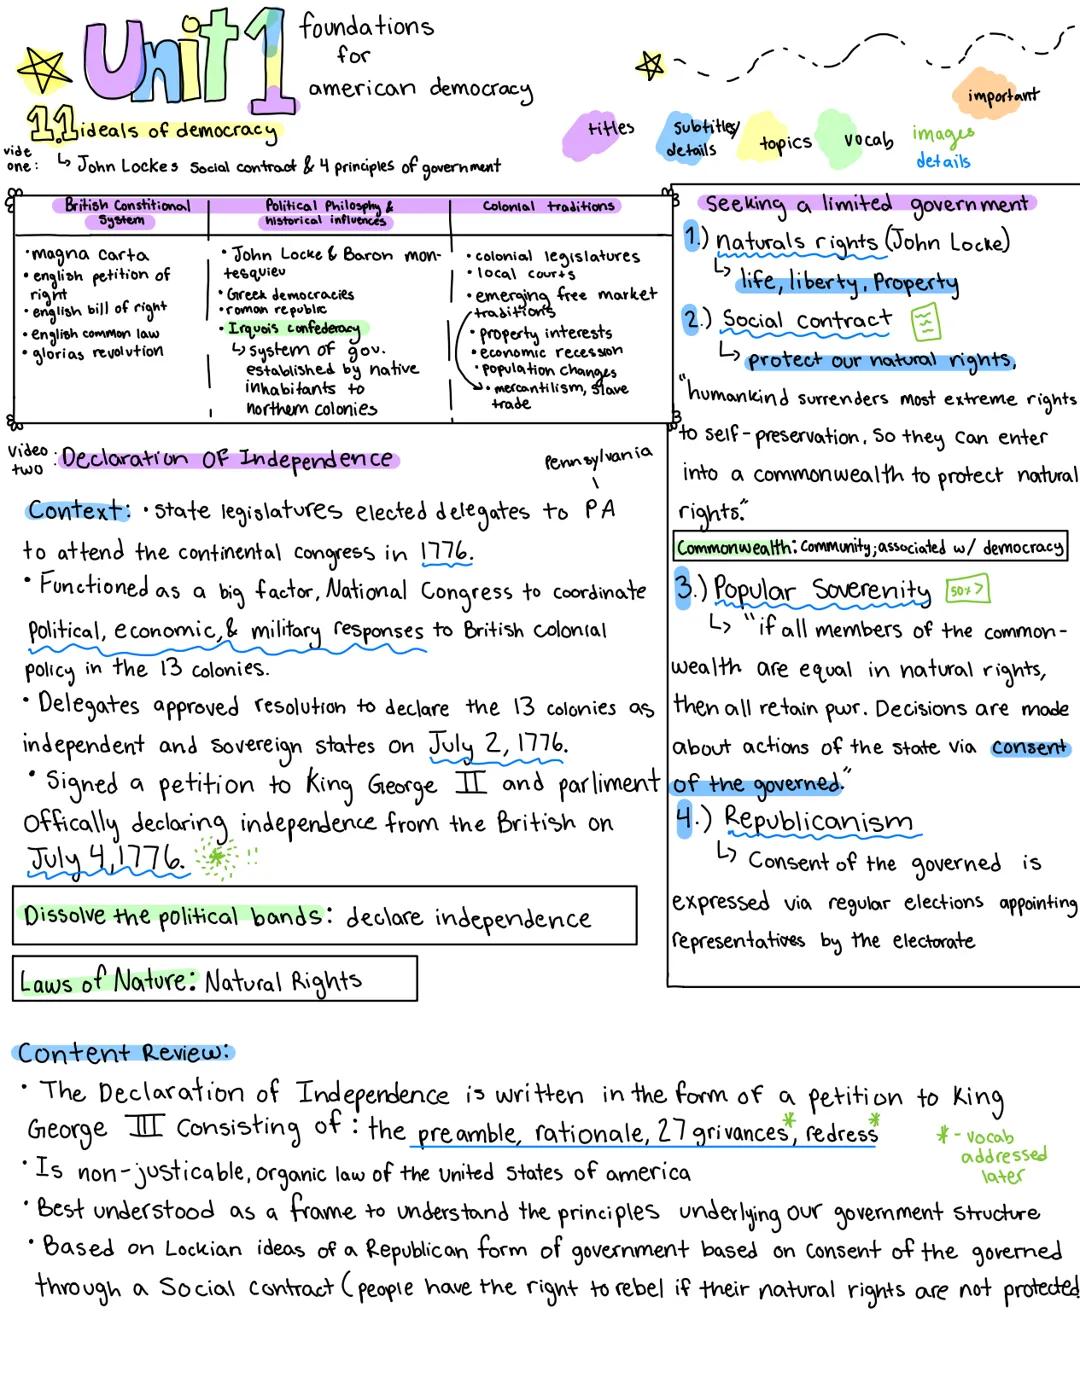 Unit 1
foundations
for
american democracy
1.1 ideals of democracy
vide
one: ↳ John Lockes Social contract & 4 principles of government
titles
Subtitles/
details
topics
vocab
images
details
important
British Constitional
System
Political Philosphy &
historical influences
Colonial traditions
•magna carta
•english petition of
right
•english bill of right
•english common law
•glorias revolution
•John Locke & Baron mon-
tesquieu
•Greek democracies
•roman republic
•Irquois confederacy
↳ system of gov.
established by native
inhabitants to
northern colonies
•colonial legislatures
•local courts
•emerging free market
traditions
•property interests
•economic recession
•population changes
•mercantilism, slave
trade
Seeking a limited government
1.) naturals rights (John Locke)
↳ life, liberty, Property
2.) Social Contract
↳ protect our natural rights,
"humankind surrenders most extreme rights
to self-preservation, So they can enter
into a commonwealth to protect natural
rights."
Commonwealth: Community; associated w/ democracy
3.) Popular Soverenity 50% >
↳ "if all members of the common-
wealth are equal in natural rights,
then all retain pwr. Decisions are made
about actions of the state via consent
of the governed."
4.) Republicanism
↳ Consent of the governed is
expressed via regular elections appointing
representatives by the electorate
Video
two : Declaration OF Independence
Pennsylvania
Context: •state legislatures elected delegates to PA
to attend the continental congress in 1776.
•Functioned as a big factor, National Congress to coordinate
Political, economic, & military responses to British Colonial
policy in the 13 colonies.
•Delegates approved resolution to declare the 13 colonies as
independent and sovereign states on July 2, 1776.
•Signed a petition to King George II and parliment
Offically declaring independence from the British on
July 4, 1776.
Dissolve the political bands: declare independence
Laws of Nature: Natural Rights
Content Review:
•The Declaration of Independence is written in the form of a petition to King
George III Consisting of : the preamble, rationale, 27 grivances*, redress*
* - vocab
addressed
later
•Is non-justicable, organic law of the united States of america
•Best understood as a frame to understand the principles underlying our government structure
•Based on Lockian ideas of a Republican form of government based on Consent of the governed
through a Social Contract (people have the right to rebel if their natural rights are not protected